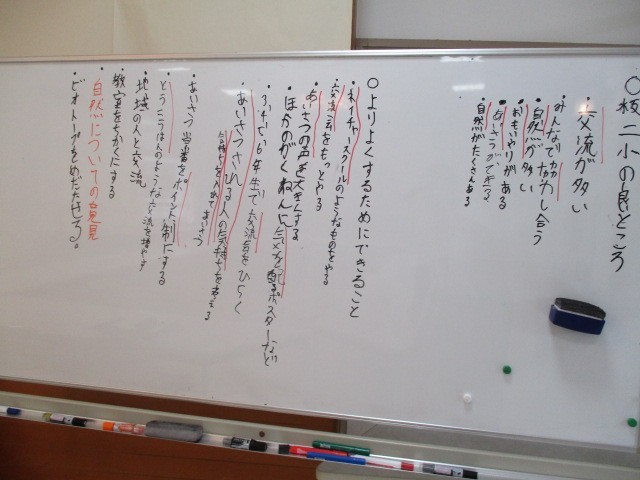 ○板二小の良いところ
・交流が多い
・みんなで協力し合う
・自然が多い
・おもいやりがある
・あいさつができる
・自然がたくさんある
○よりよくするためにできること
・ネイチャースクールのようなものをやる
・交流会をもっとやる
・あいさつの声を大きくする
・ほかのがくねんに気を配るポスターなど
・1年生で交流会をひらく
・あいさつされる人の気持ちを考える
気持ちを入れてあいさつ
・あいさつ当番をポイント制にする
・とうこうはんのような交流を増やす
・地域の人と交流
・教室をちかくにする
自然についての意見
・ビオトープをめだたせる。